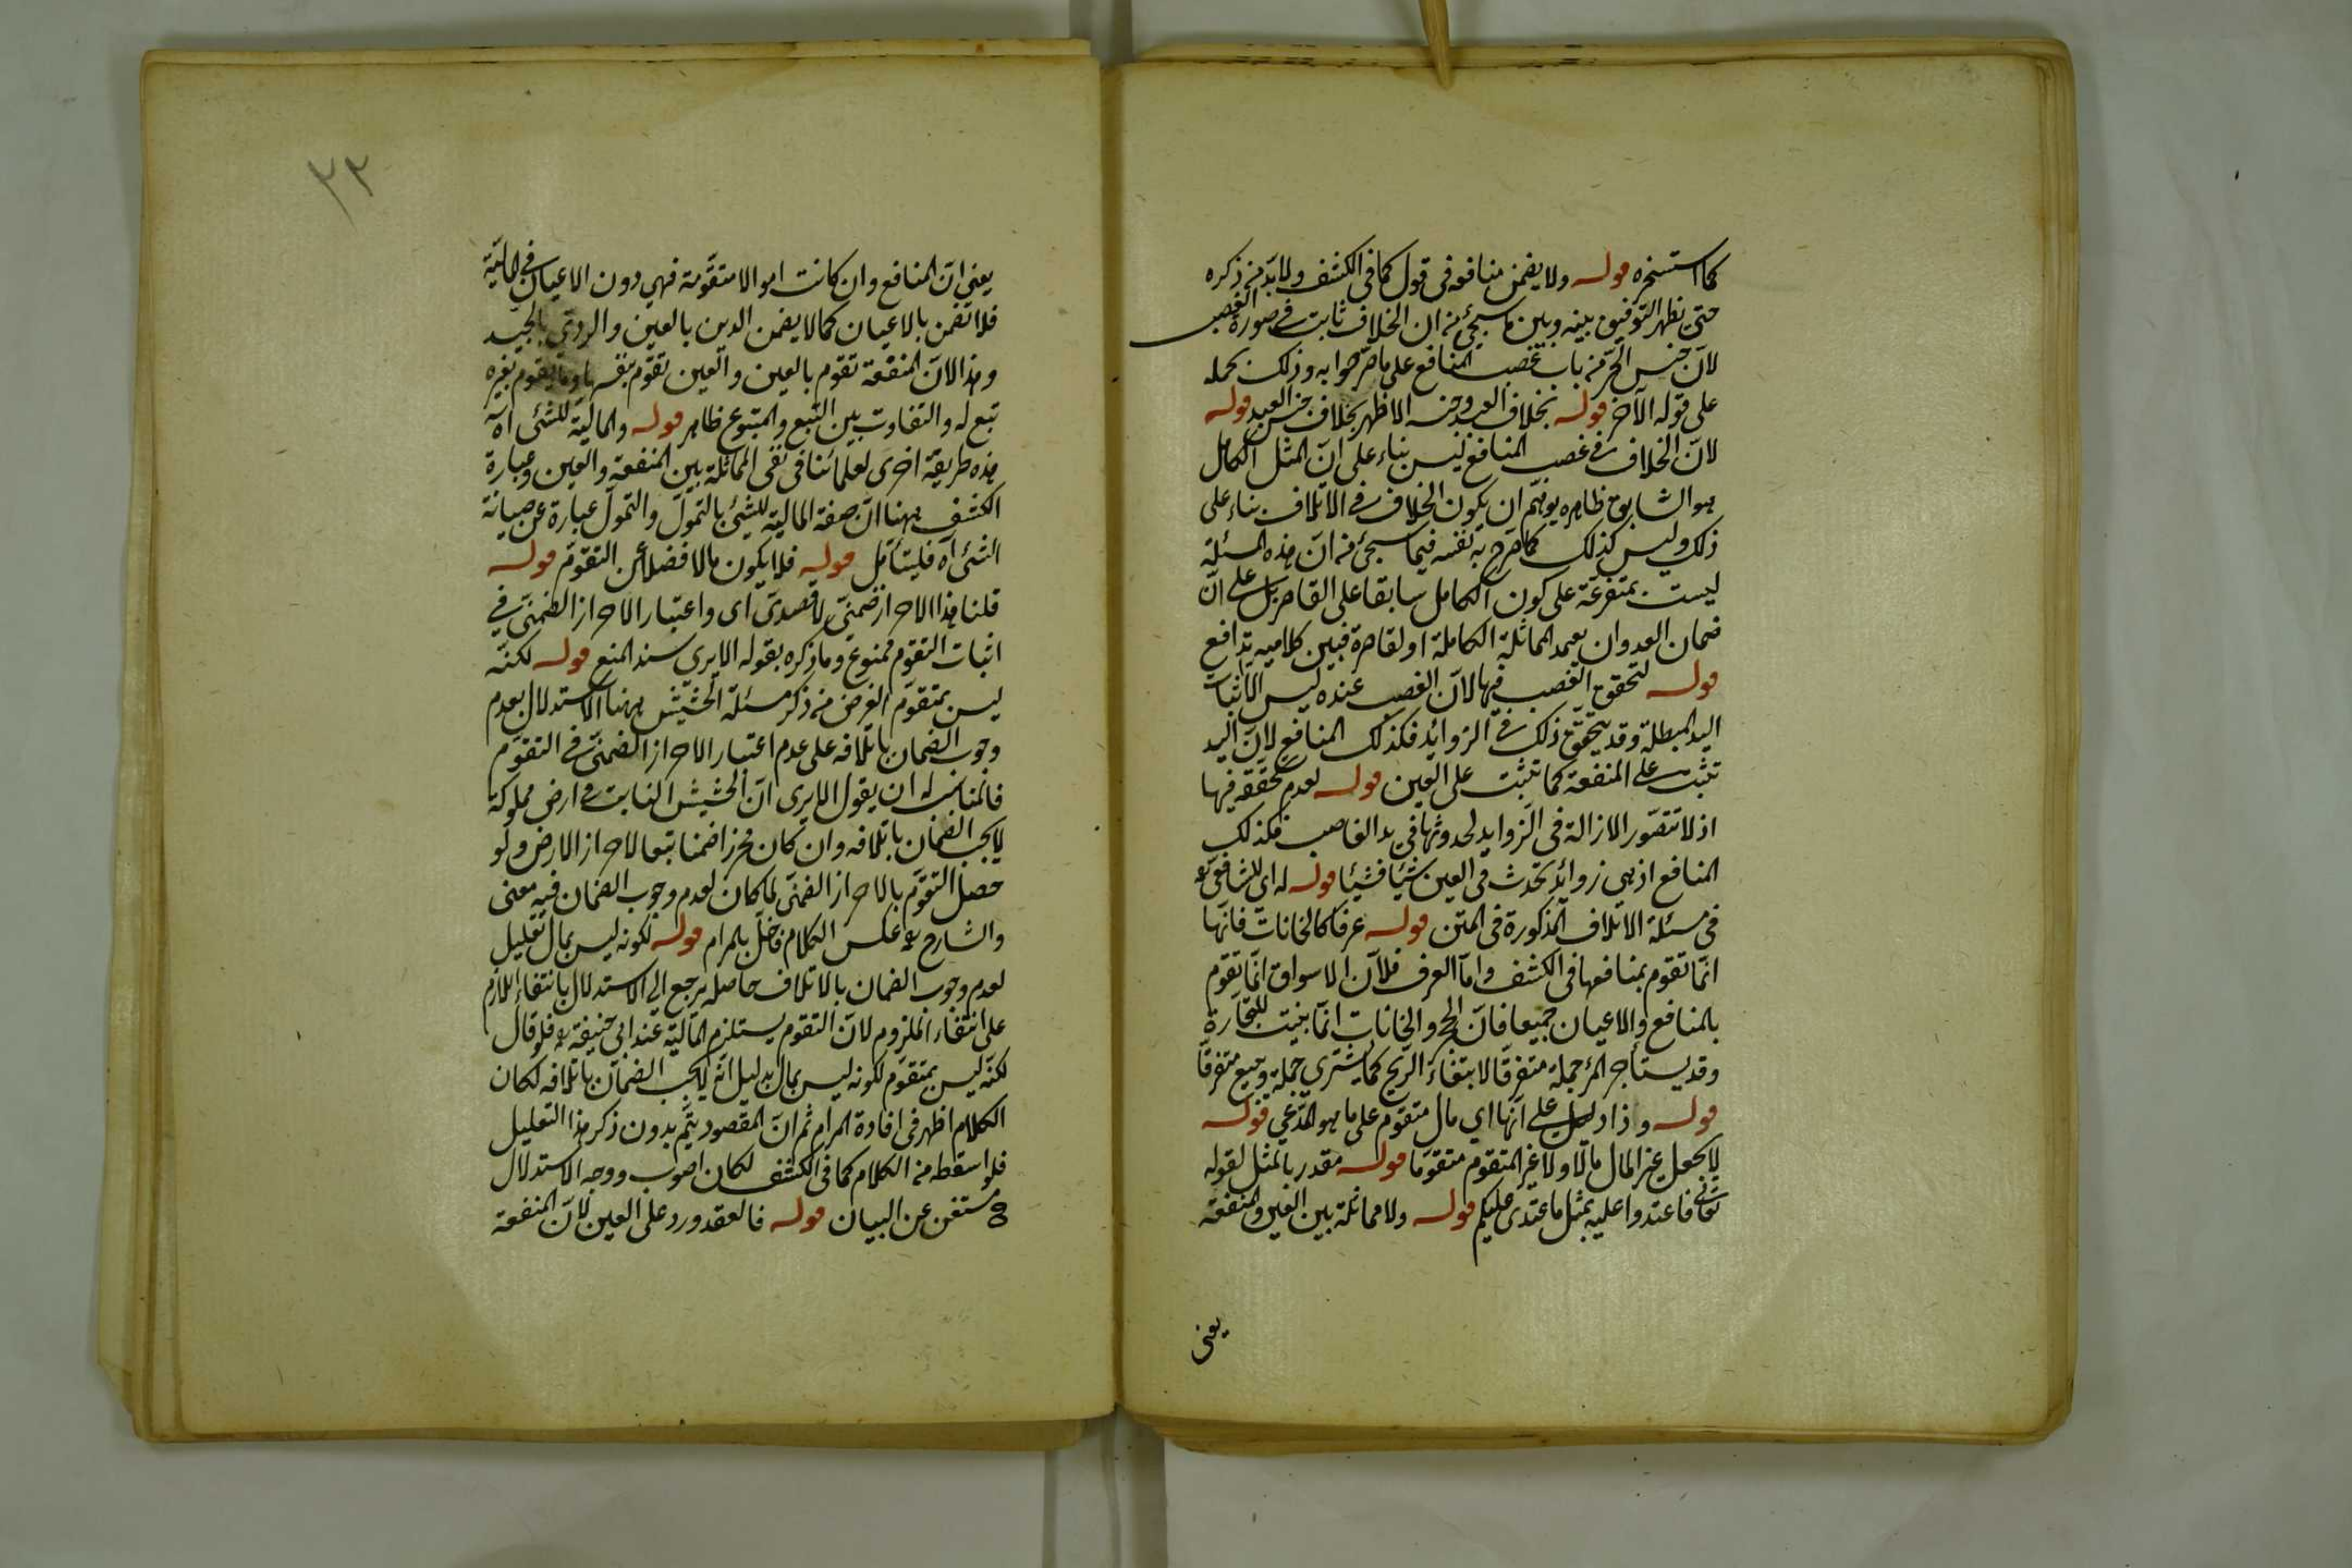 كما استسخره قوله ولا يضمن منافعه في قول كما في الكشف ولا بد من ذكره
حتى يظهر التوفيق بينه وبين ما سيجئ من ان الخلاف ثابت في صورة الغصب
لان حبس الحر من باب غصب المنافع على ما صرحوا به وذلك بحمله
على قوله الآخر قوله بخلاف العبد وحبسه الاظهر بخلاف حبس العبد قوله
لان الخلاف في غصب المنافع ليس بناء على ان المثل الكامل
هو السابق ظاهره يوهم ان يكون الخلاف في الاتلاف بناء على
ذلك وليس كذلك كما صرح به نفسه فيما سيجئ من ان هذه المسئلة
ليست بمتفرعة على كون الكامل سابقا على القاصر بل على ان
ضمان العدوان يعمد المماثلة الكاملة او القاصرة فبين كلاميه تدافع
قوله لتحقق الغصب فيها لان الغصب عنده ليس الا اثبات
اليد المبطلة وقد يتحقق ذلك في الزوائد فكذلك المنافع لان اليد
تثبت على المنفعة كما تثبت على العين قوله لعدم تحققه فيها
اذ لا تتصور الازالة في الزوايد لحدوثها في يد الغاصب فكذلك
المنافع اذ هي زوائد تحدث في العين شيئا فشيئا قوله له اي للشافعي رح
في مسئلة الاتلاف المذكورة في المتن قوله عرفا كالخانات فانها
انما تقوم بمنافعها في الكشف واما العرف فلان الاسواق انما تقوم
بالمنافع والاعيان جميعا فان الحجر والخانات انما بنيت للتجارة
وقد يستأجر المرء جملة متفرقا لابتغاء الربح كما يشتري جملة ويبيع متفرقا
قوله واذا دل على انها اي مال متقوم على ما هو المدعي قوله
لا يجعل غير المال مالا ولا غير المتقوم متقوما قوله مقدر بالمثل لقوله
تعالى فاعتدوا عليه بمثل ما اعتدى عليكم قوله ولا مماثلة بين العين والمنفعة
يعنى
٣٣
يعني ان المنافع وان كانت اموالا متقومة فهي دون الاعيان في المالية
فلا تضمن بالاعيان كما لا يضمن الدين بالعين والردي بالجيد
وهذا لان المنفعة تقوم بالعين والعين تقوم بنفسها وما يقوم بغيره
تبع له والتفاوت بين التبع والمتبوع ظاهر قوله والمالية للشئ اه
هذه طريقة اخرى لعلمائنا في نفي المماثلة بين المنفعة والعين وعبارة
الكشف ههنا ان صفة المالية للشئ بالتمول والتمول عبارة عن صيانة
الشئ اه فليتأمل قوله فلا يكون مالا فضلا عن التقوم قوله
قلنا هذا الاحراز ضمني لا قصدي اى واعتبار الاحراز الضمني في
اثبات التقوم ممنوع وما ذكره بقوله الا يرى سند المنع قوله لكنه
ليس بمتقوم الغرض من ذكر مسئلة الحشيش ههنا الاستدلال بعدم
وجوب الضمان باتلافه على عدم اعتبار الاحراز الضمني في التقوم
فالمناسب له ان يقول الا يرى ان الحشيش النابت في ارض مملوكة
لا يجب الضمان باتلافه وان كان محرزا ضمنا تبعا لاحراز الارض ولو
حصل التقوم بالاحراز الضمني لما كان لعدم وجوب الضمان فيه معنى
والشارح رح عكس الكلام فاخل بالمرام قوله لكونه ليس بمال تعليل
لعدم وجوب الضمان بالاتلاف حاصله يرجع الى الاستدلال بانتفاء اللازم
على انتفاء الملزوم لان التقوم يستلزم المالية عند ابي حنيفة رح فلو قال
لكنه ليس بمتقوم لكونه ليس بمال بدليل انه لا يجب الضمان باتلافه لكان
الكلام اظهر في افادة المرام ثم ان المقصود يتم بدون ذكر هذا التعليل
فلو اسقطه من الكلام كما في الكشف لكان اصوب ووجه الاستدلال
مستغن عن البيان قوله فالعقد ورد على العين لان المنفعة